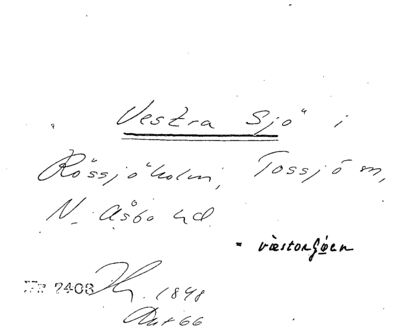 "Vestra Sjö" i
Rössjöholm, Tossjö m,
N. Åsbo hd
= västorsjöen
Nr 7408
1848